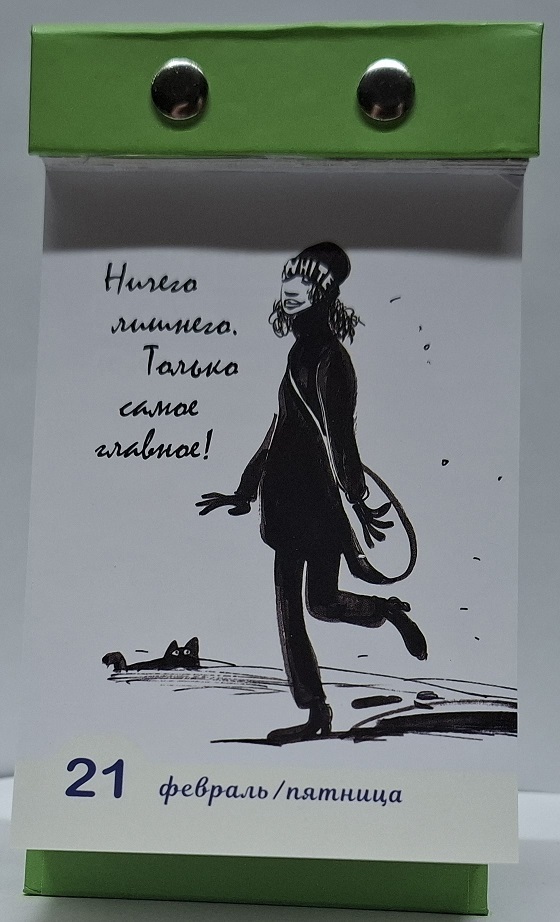 Ничего
лишнего.
Только
самое
главное!
WHITE
21 февраль/пятница